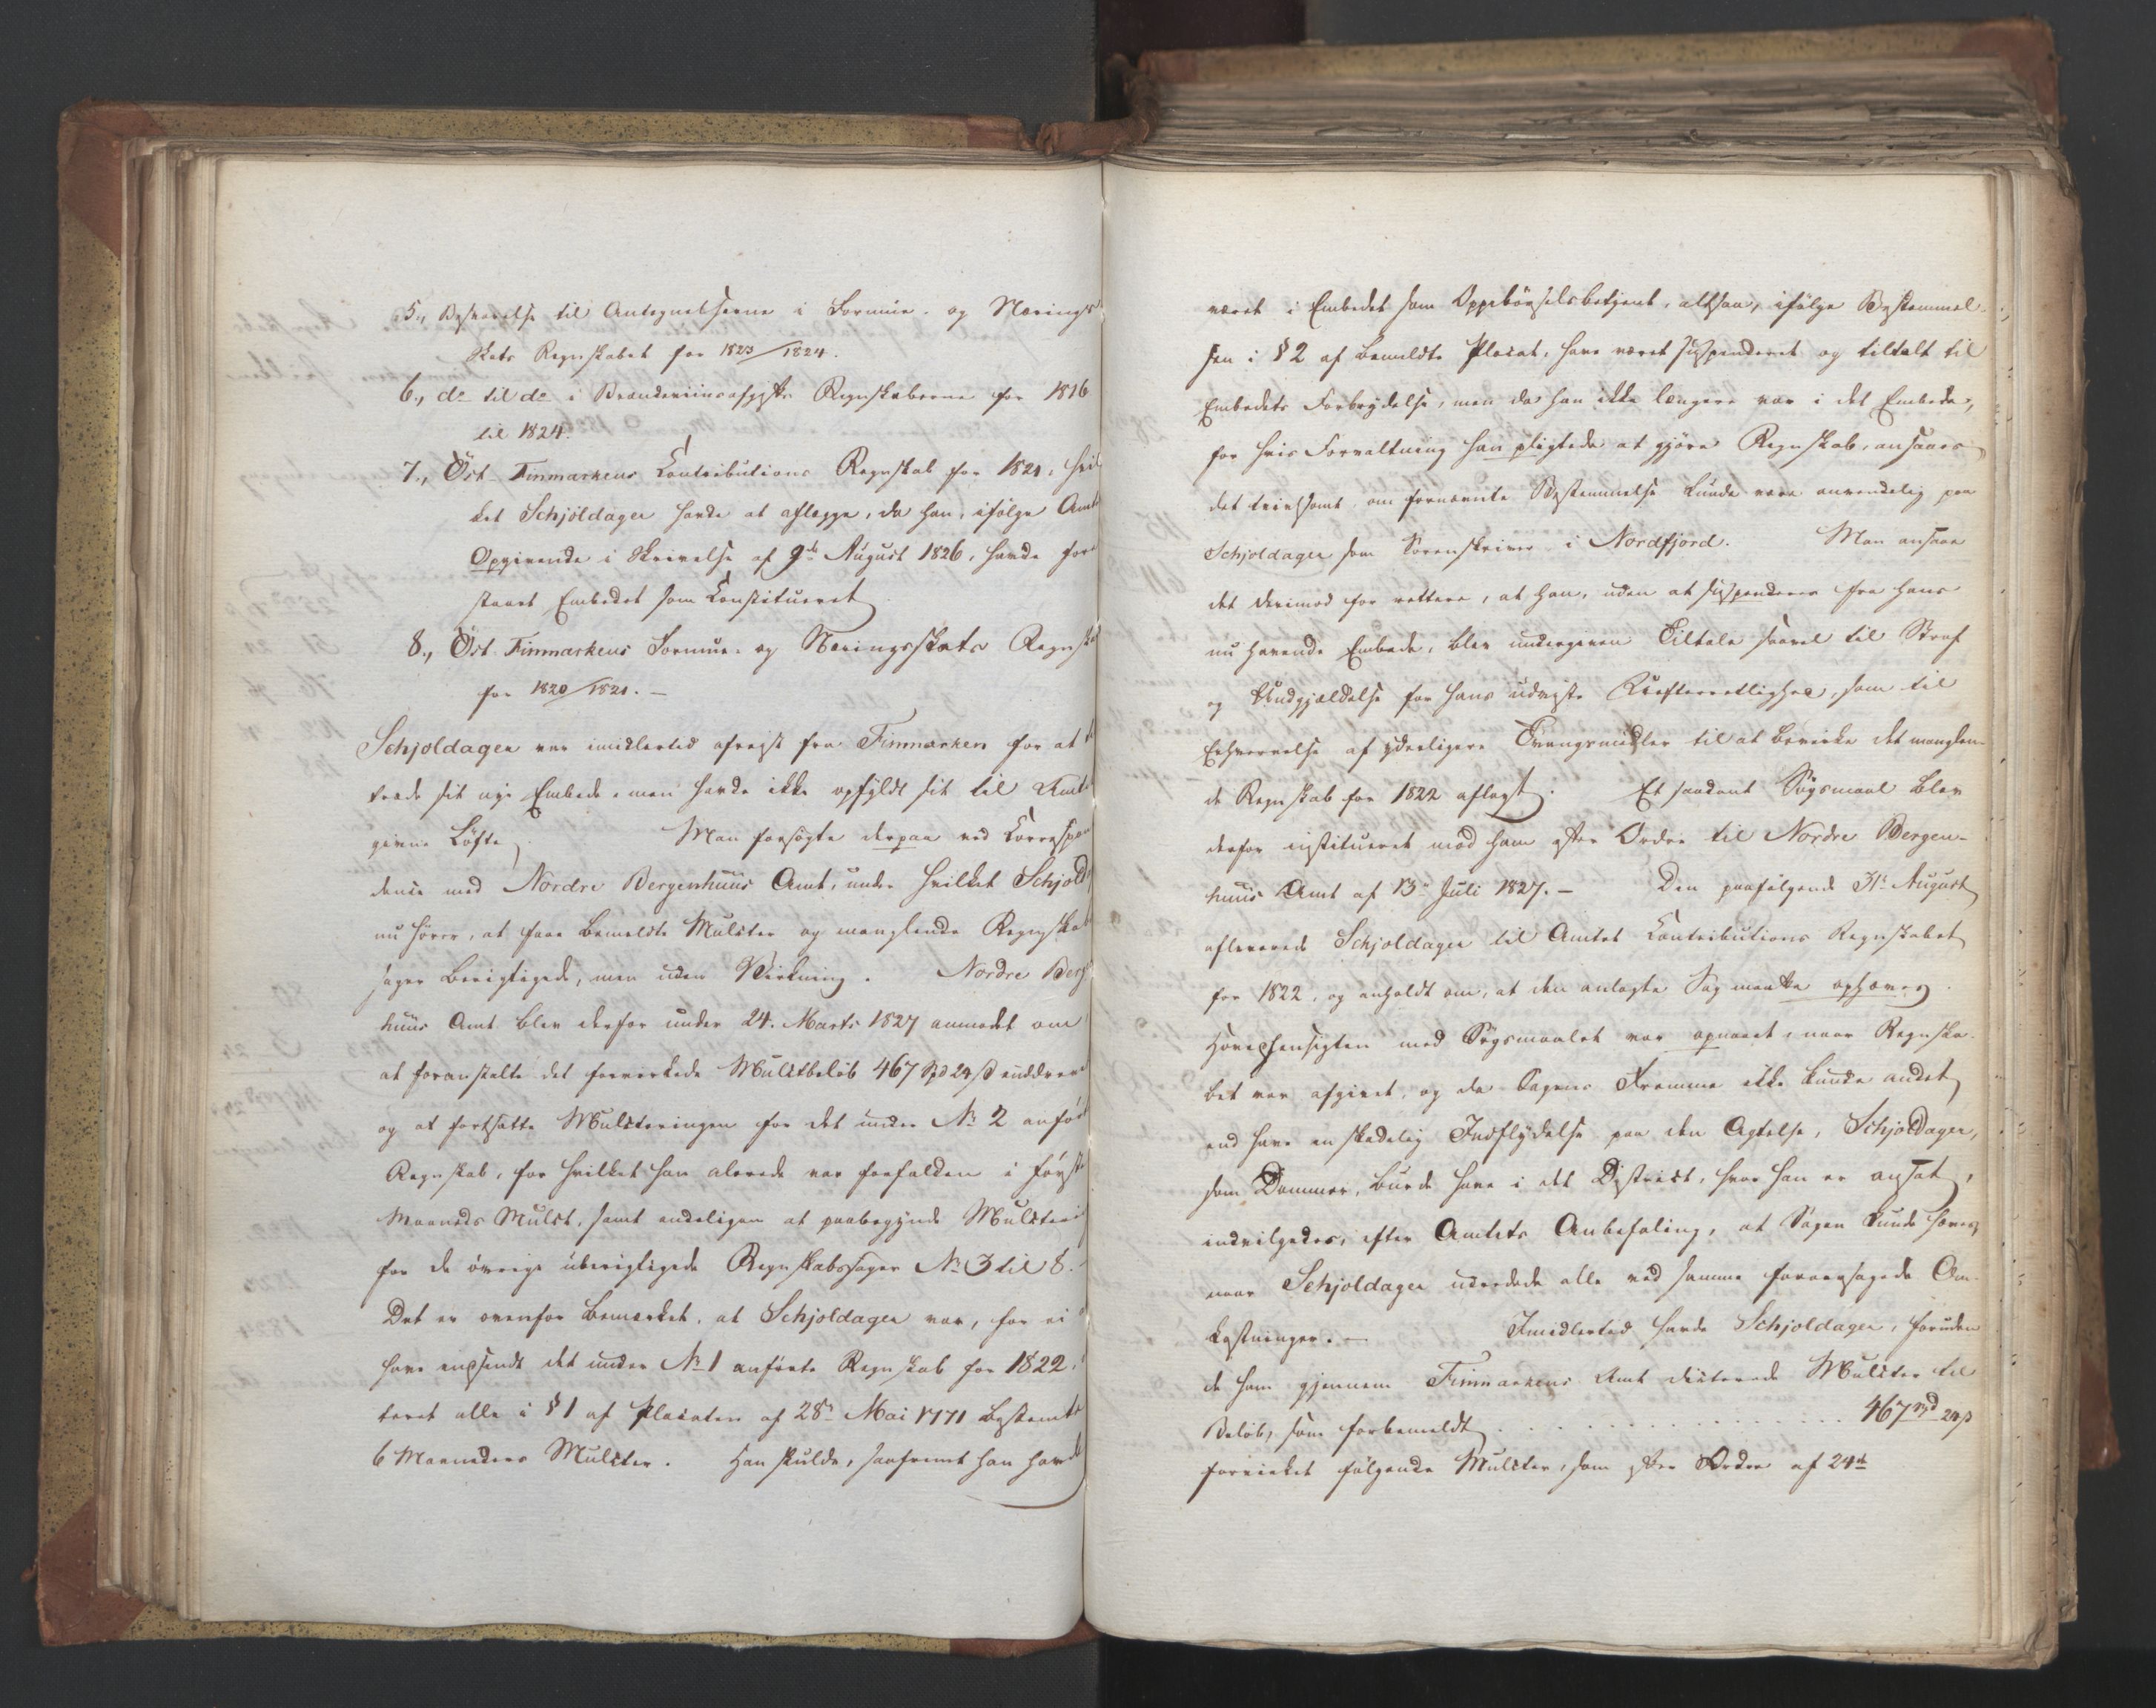 5., Besvarelse til Antegnelserne i Formue- og Nærings
skats Regnskabet for 1823/1824.
6., do til do i Brændeviinsafgifts Regnskaberne for 1816
til 1824.
7., Öst-Finmarkens Contributions Regnskab for 1821, hvil
ket Schjöldager havde at aflægge, da han, ifölge Amts
Opgivende i Skrivelse af 9de August 1826, havde fore
staaet Embedet som Constitueret
8., Öst-Finmarkens Formue- og Næringsskats Regnsk
for 1820/1821. –
Schjoldager var imidlertid afreist fra Finmarken for at
træde sit nye Embede, men havde ikke opfyldt sit til Amt
givne Löfte. Man forsögte derpaa ved Correspon
dence med Nordre Bergenhuus Amt, under hvilket Schjold
nu hörer, at faae bemeldte Mulcter og manglende Regnskab
sager berigtigede, men uden Virkning. Nordre Berg
huus Amt blev derfor under 24. Marts 1827 anmodet om
at foranstalte det forvirkede Mulctbelöb 467 Spd 24 ß inddrev
og at fortsætte Mulcteringen for det under No 2 anför
Regnskab, for hvilket han alerede var forfalden i förste
Maaneds Mulct, samt endeligen at paabegynde Mulcteri
for de övrige uberigtigede Regnskabssager No 3 til 8.
Det er ovenfor bemærket, at Schjoldager var, for ei
have indsendt det under No 1 anförte Regnskab for 1822,
teret alle i § 1 af Placaten af 28de Mai 1771 bestemte
6 Maaneders Mulcter. Han skulde, saafremt han havde
været i Embedet som Oppebörselsbetjent, altsaa, ifölge Bestemmel-
sen i § 2 af bemeldte Placat, have været suspenderet og tiltalt til
Embedets Forbrydelse, men da han ikke længere var i det Embede,
for hvis Forvaltning han pligtede at gjöre Regnskab, ansaaes
det tvivlsomt, om fornævnte Bestemmelse kunde være anvendelig paa
Schjoldager som Sorenskriver i Nordfjord. Man ansaae
det derimod for rettere, at han, uden at suspenderes fra hans
nu havende Embede, blev undergiven Tiltale saavel til Straf
og Undgjældelse for hans udviste Uefterrettlighed, som til
Erhvervelse af yderligere Tvangsmidler til at bevirke det manglen-
de Regnskab for 1822 aflagt. Et saadant Sögsmaal blev
derfor institueret mod ham efter Ordre til Nordre Bergen-
huus Amt af 13de Juli 1827. – Den paafölgende 31te August
afleverede Schjoldager til Amtet Contributions Regnskabet
for 1822, og anholdt om, at den anlagte Sag maatte ophæves.
Hovedhensigten med Sögsmaalet var opnaaet, naar Regnska-
bet var afgivet, og da Sagens Fremme ikke kunde andet
end have en skadelig Indflydelse paa den Agtelse, Schjoldager,
som Dommer, burde have i det District, hvor han er ansat,
indvilgedes, efter Amtets Anbefaling, at Sagen kunde hæves,
naar Schjoldager udredede alle ved samme foraarsagede Om-
kostninger. – Imidlertid havde Schjoldager, foruden
de ham gjennem Finmarkens Amt dicterede Mulcter til
Belöb, som forbemeldt . . . . . . . . . . 467 Spd 24 ß
forvirket fölgende Mulcter, som efter Ordre af 24de